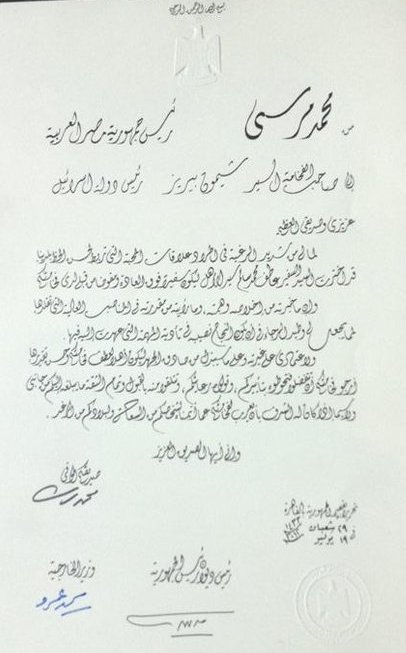 بسم الله الرحمن الرحيم
من محمد مرسي رئيس جمهورية مصر العربية
إلى صاحب الفخامة السيد شيمون بيريز رئيس دولة إسرائيل
عزيزي وصديقي العظيم
لما لي من شديد الرغبة في اطراد علاقات المحبة التي تربط لحسن الحظ بلدينا
قد اخترت السيد السفير عاطف محمد سالم سيد الأهل ليكون سفيرا فوق العادة ومفوضا من قبلي لدى فخامتكم
وإن ما خبرته من إخلاصه وهمته وما رأيته من مقدرته في المناصب العليا التي تقلدها
مما يجعل لي وطيد الرجاء في أن يكون النجاح نصيبه في تأدية المهمة التي عهدت إليه فيها
ولاعتمادي على غيرته وعلى ما سيبذل من صادق الجهد ليكون أهلا لعطف فخامتكم وحسن تقديرها
أرجو من فخامتكم أن تتفضلوا فتحوطوه بتأييدكم وتولوه رعايتكم وتتلقوا منه بالقبول وتمام الثقة ما يبلغه إليكم من جانبي
ولا سيما إذا كان له الشرف بأن يعرب لفخامتكم عما أتمناه لشخصكم من السعادة ولبلادكم من الرغد
وإني أيها الصديق العزيز
صديقكم الوفي
محمد مرسي
تحريرا بقصر الجمهورية بالقاهرة
في ٢٩ شعبان ١٤٣٣
١٩ يوليو ٢٠١٢
رئيس ديوان رئيس الجمهورية
وزير الخارجية